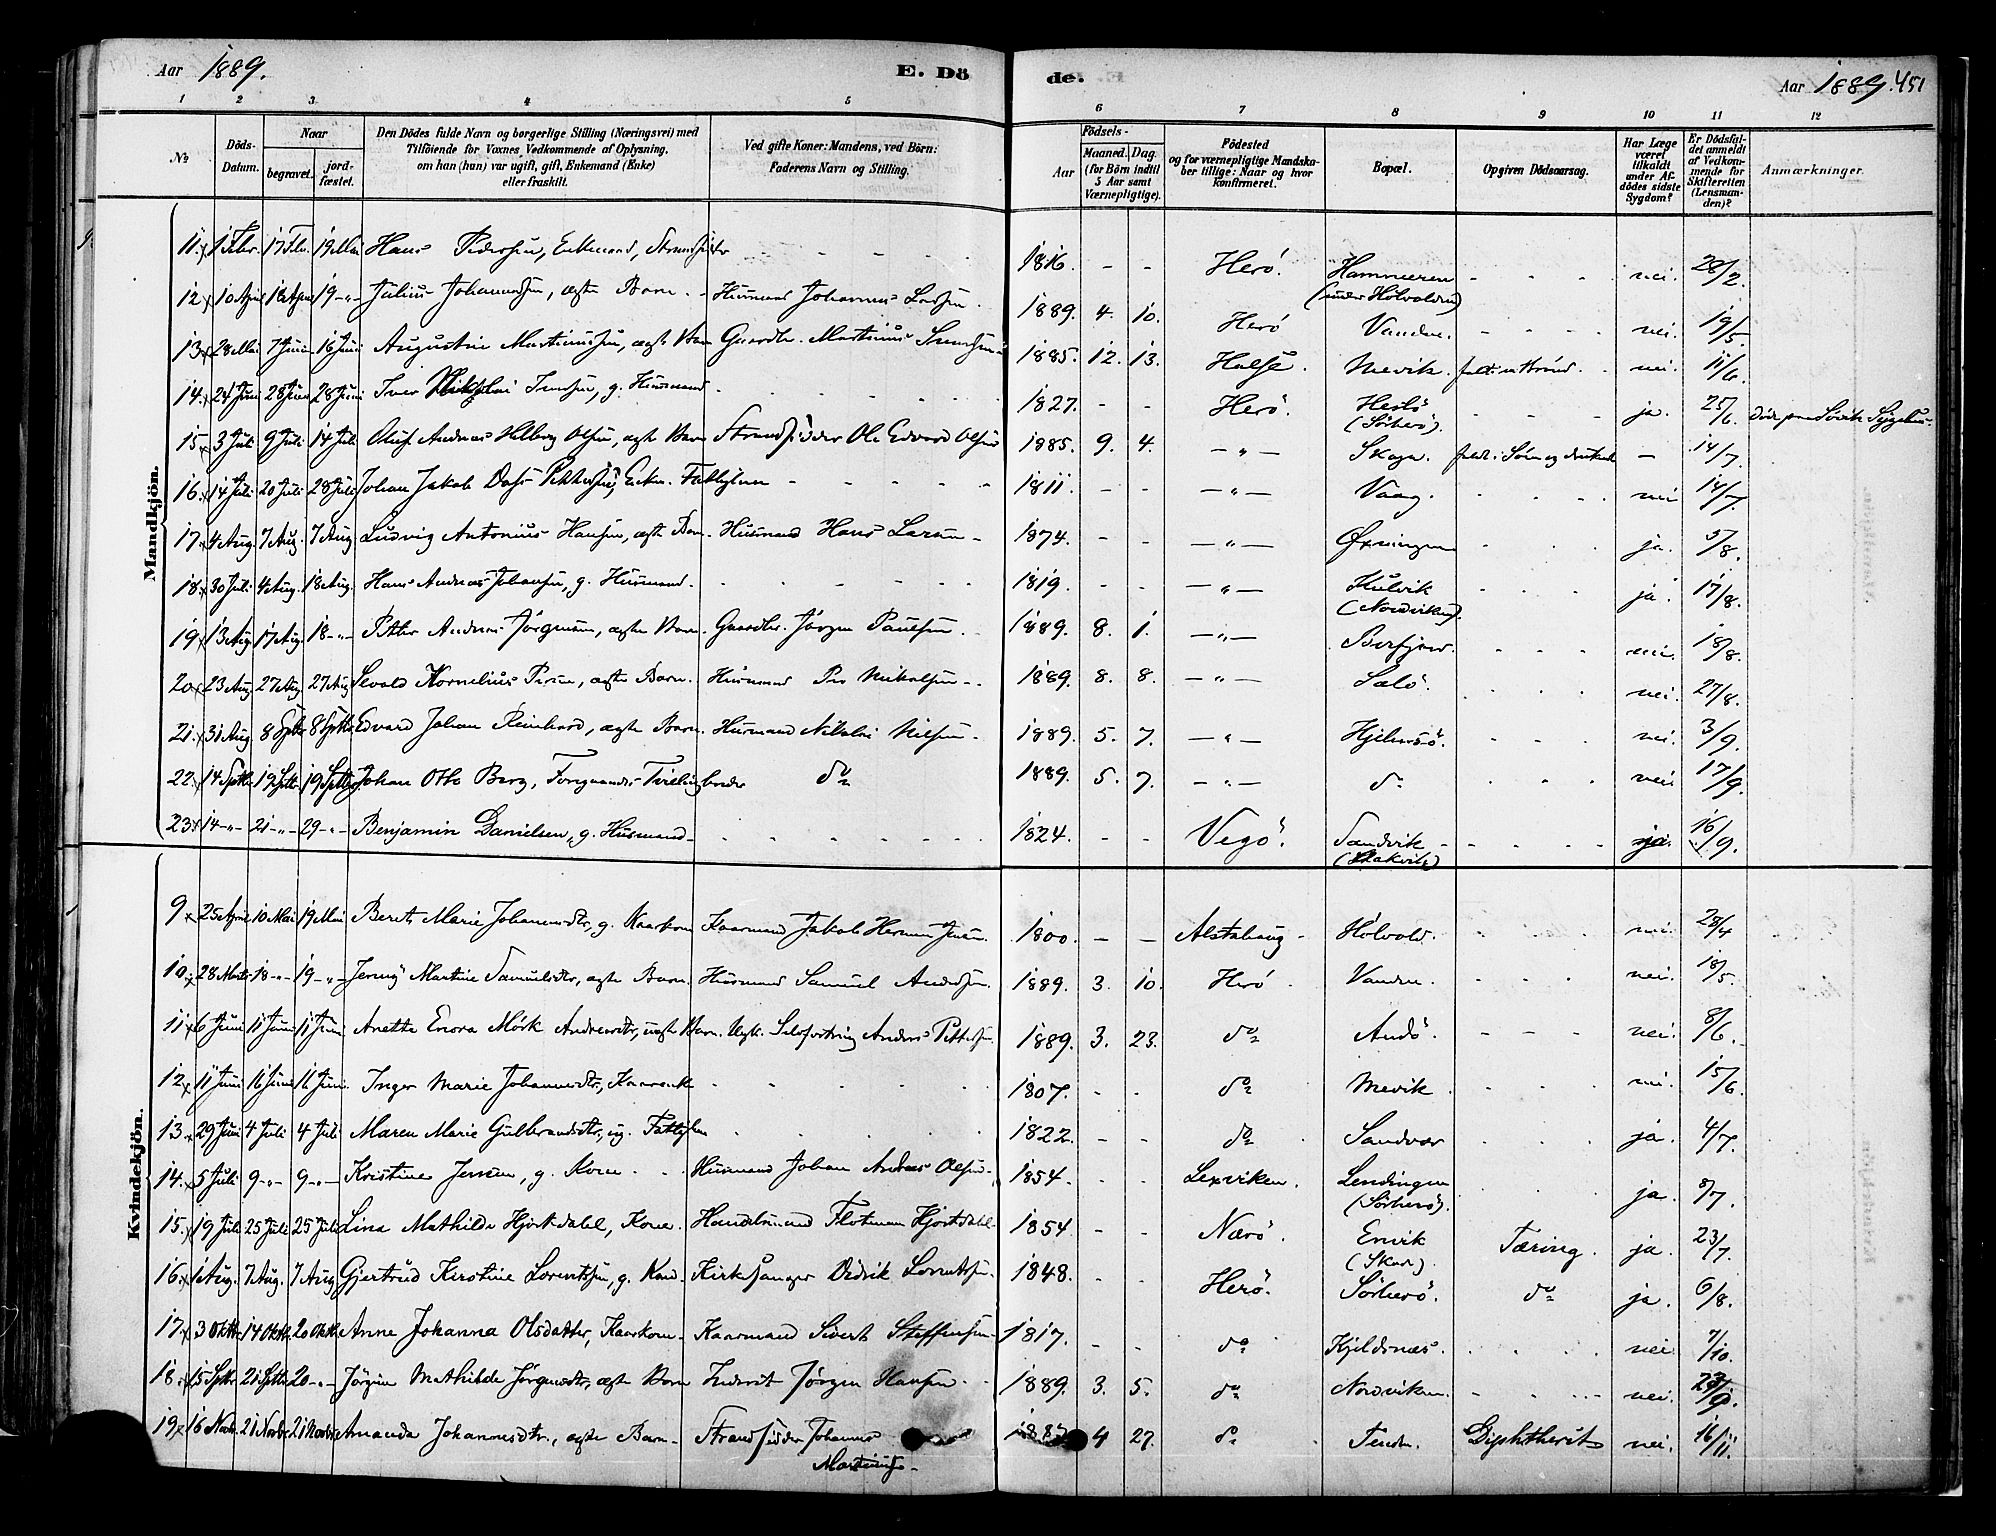 Aar 1889.
E. Dö
de.
Aar 1889. 451
1 2 3. 4 5 6 7 8 9 10 11 12
No
Döds-Datum.
Naar
begravet.
jordfæstet.
Den Dödes fulde Navn og borgerlige Stilling (Næringsvei) med
Tilföiende for Voxnes Vedkommende af Oplysning,
om han (hun) var ugift, gift, Enkemand (Enke)
eller fraskilt.
Ved gifte Koner: Mandens, ved Börn:
Faderens Navn og Stilling.
Födsels-
Aar
Maaned. Dag.
(for Börn indtil
5 Aar samt
Værnepligtige).
Födested
og for værnepligtige Mandska-
ber tillige: Naar og hvor
konfirmeret.
Bopæl.
Opgiven Dödsaarsag.
Har Læge
været
tilkaldt
under Af-
dödes sidste
Sygdom?
Er Dödsfal-
det anmeldt
af Vedkom-
mende for
Skifteretten
(Lensman-
den)?
Anmærkninger.
Mandkjön.
11. 1 Febr. 17 Febr. 19 Mai Hans Pedersen, Enkemand, Strandsidder 1816. - - Herö. Hammeren (under Hölvolden) nei. 28/2.
12 10 April 16 April 19 -"- Julius Johannessen, ægte Barn. Husmand Johannes Larsen. 1889. 4. 10. Herö Vandve. nei. 19/5.
13 28 Mai 7 Juni 16 Juni Augustin Martinussen, ægte Barn Gaardbr. Martinus 1885. 12. 13. Halse. Mevik. nei. 11/6.
14. 24 Juni 28 Juni 28 Juni Iver Nikolai Jensen, g. Husmand. 1827. - - Herö. (Sörherö). ja. 25/6.
15 3 Juli 9 Juli 14 Juli Oluf Andreas Olsen, ægte Barn Strandsidder Ole Edvard Olsen 1885. 9. 4. -"- Skaga. - 14/7.
16. 14 Juli 20 Juli 28 Juli Johan Jakob Dass Pettersen, Enkm. Fattiglem 1811. - - -"- Vaag. nei 14/7.
17. 4 Aug. 7 Aug. 7 Aug. Ludvig Antonius Hansen, ægte Barn. Husmand Hans Larsen 1874. - - -"- Öxningen ja. 5/8.
18. 30 Juli 4 Aug. 18 Aug. Hans Andreas Johansen, g. Husmand. 1819. - - -"- Hulvik (Nordviken). ja. 17/8.
19 13 Aug 17 Aug. 18 -"- Petter Andreas Jörgensen, ægte Barn. Gaardbr. Jörgen Paulsen. 1889. 8. 1. -"- nei. 18/8.
20 23 Aug 27 Aug. 27 Aug Sevald Kornelius Persen, ægte Barn. Husmand Per Nikolaisen 1889. 8. 8. -"- Salö. nei. 27/8.
21. 31 Aug 8 Sptbr 8 Sptbr Edvard Johan Reinhard, ægte Barn. Husmand Nikolai Nilsen. 1889. 5. 7. -"- Hjelmsö. nei. 3/9.
22. 14 Sptbr 19 Sptbr 19 Sptbr Johan Otto Berg, Foregaaendes Tvillingbroder do 1889. 5. 7. -"- do nei 17/9.
23. 14 -"- 21 -"- 29 -"- Benjamin Danielsen, g. Husmand 1824. - - Vegö. Sandvik ja. 16/9.
Kvindekjön.
9 25 April 10 Mai 19 Mai Beret Marie Johannesdtr, g. Kaarkone Kaarmand Jakob Herman Jensen. 1800. - - Alstahaug Hölvold. nei. 28/4
10. 28 Marts 18 -"- 19 -"- Jenny Martine Samuelsdtr, ægte Barn. Husmand Samuel Andersen. 1889. 3. 10. Herö. Vandve. nei. 18/5.
11 6 Juni 11 Juni 11 Juni Anette Enora Mörk Andreasdtr, uægte Barn. Ugk. Anders Pettersen 1889. 3. 23. do Andö. nei. 8/6.
12 11 Juni 16 Juni 16 Juni Inger Marie Johannesdtr, Kaarenke 1807. - - do Mevik. nei. 15/6
13. 29 Juni 4 Juli 4 Juli Maren Marie Gulbrandsdtr, ug. Fattiglem 1822. - - do Sandvær ja. 4/7.
14. 5 Juli 9 -"- 9 -"- Kristine Jensen, g. Kone. Husmand Johan Andreas Olsen 1854. - - Lexviken. Lendingen (Sörherö). ja. 8/7.
15. 19 Juli 25 Juli 25 Juli Lina Mathilde Hjortdahl, Kone. Handelsmand Hjortdahl 1854 - - Nærö. Envik Tæring. ja. 23/7.
16. 1 Aug. 7 Aug. 7 Aug Gjertrud Kirstine Lorentsen, g. Kone Kirkesanger Didrik Lorentsen. 1848. - - Herö. Sörherö. do ja. 6/8.
17. 3 Oktbr. 14 Oktbr. 20 Oktbr Anne Johanna Olsdatter, Kaarkone Kaarmand Sivert Steffensen 1817. - - do Kjeldsnæs. nei. 7/10.
18. 15 Sptbr 21 Sptbr 20 -"- Jörgine Mathilde Jörgensdtr, ægte Barn Inderst Jörgen Hansen. 1889. 3. 5. do Nordviken. nei.
19. 16 Novbr. 21 Novbr 21 Novbr Amanda Johannesdtr, ægte Barn Strandsidder Johannes Martinussen 1887 4 27. do Diphtherit nei. 16/11.